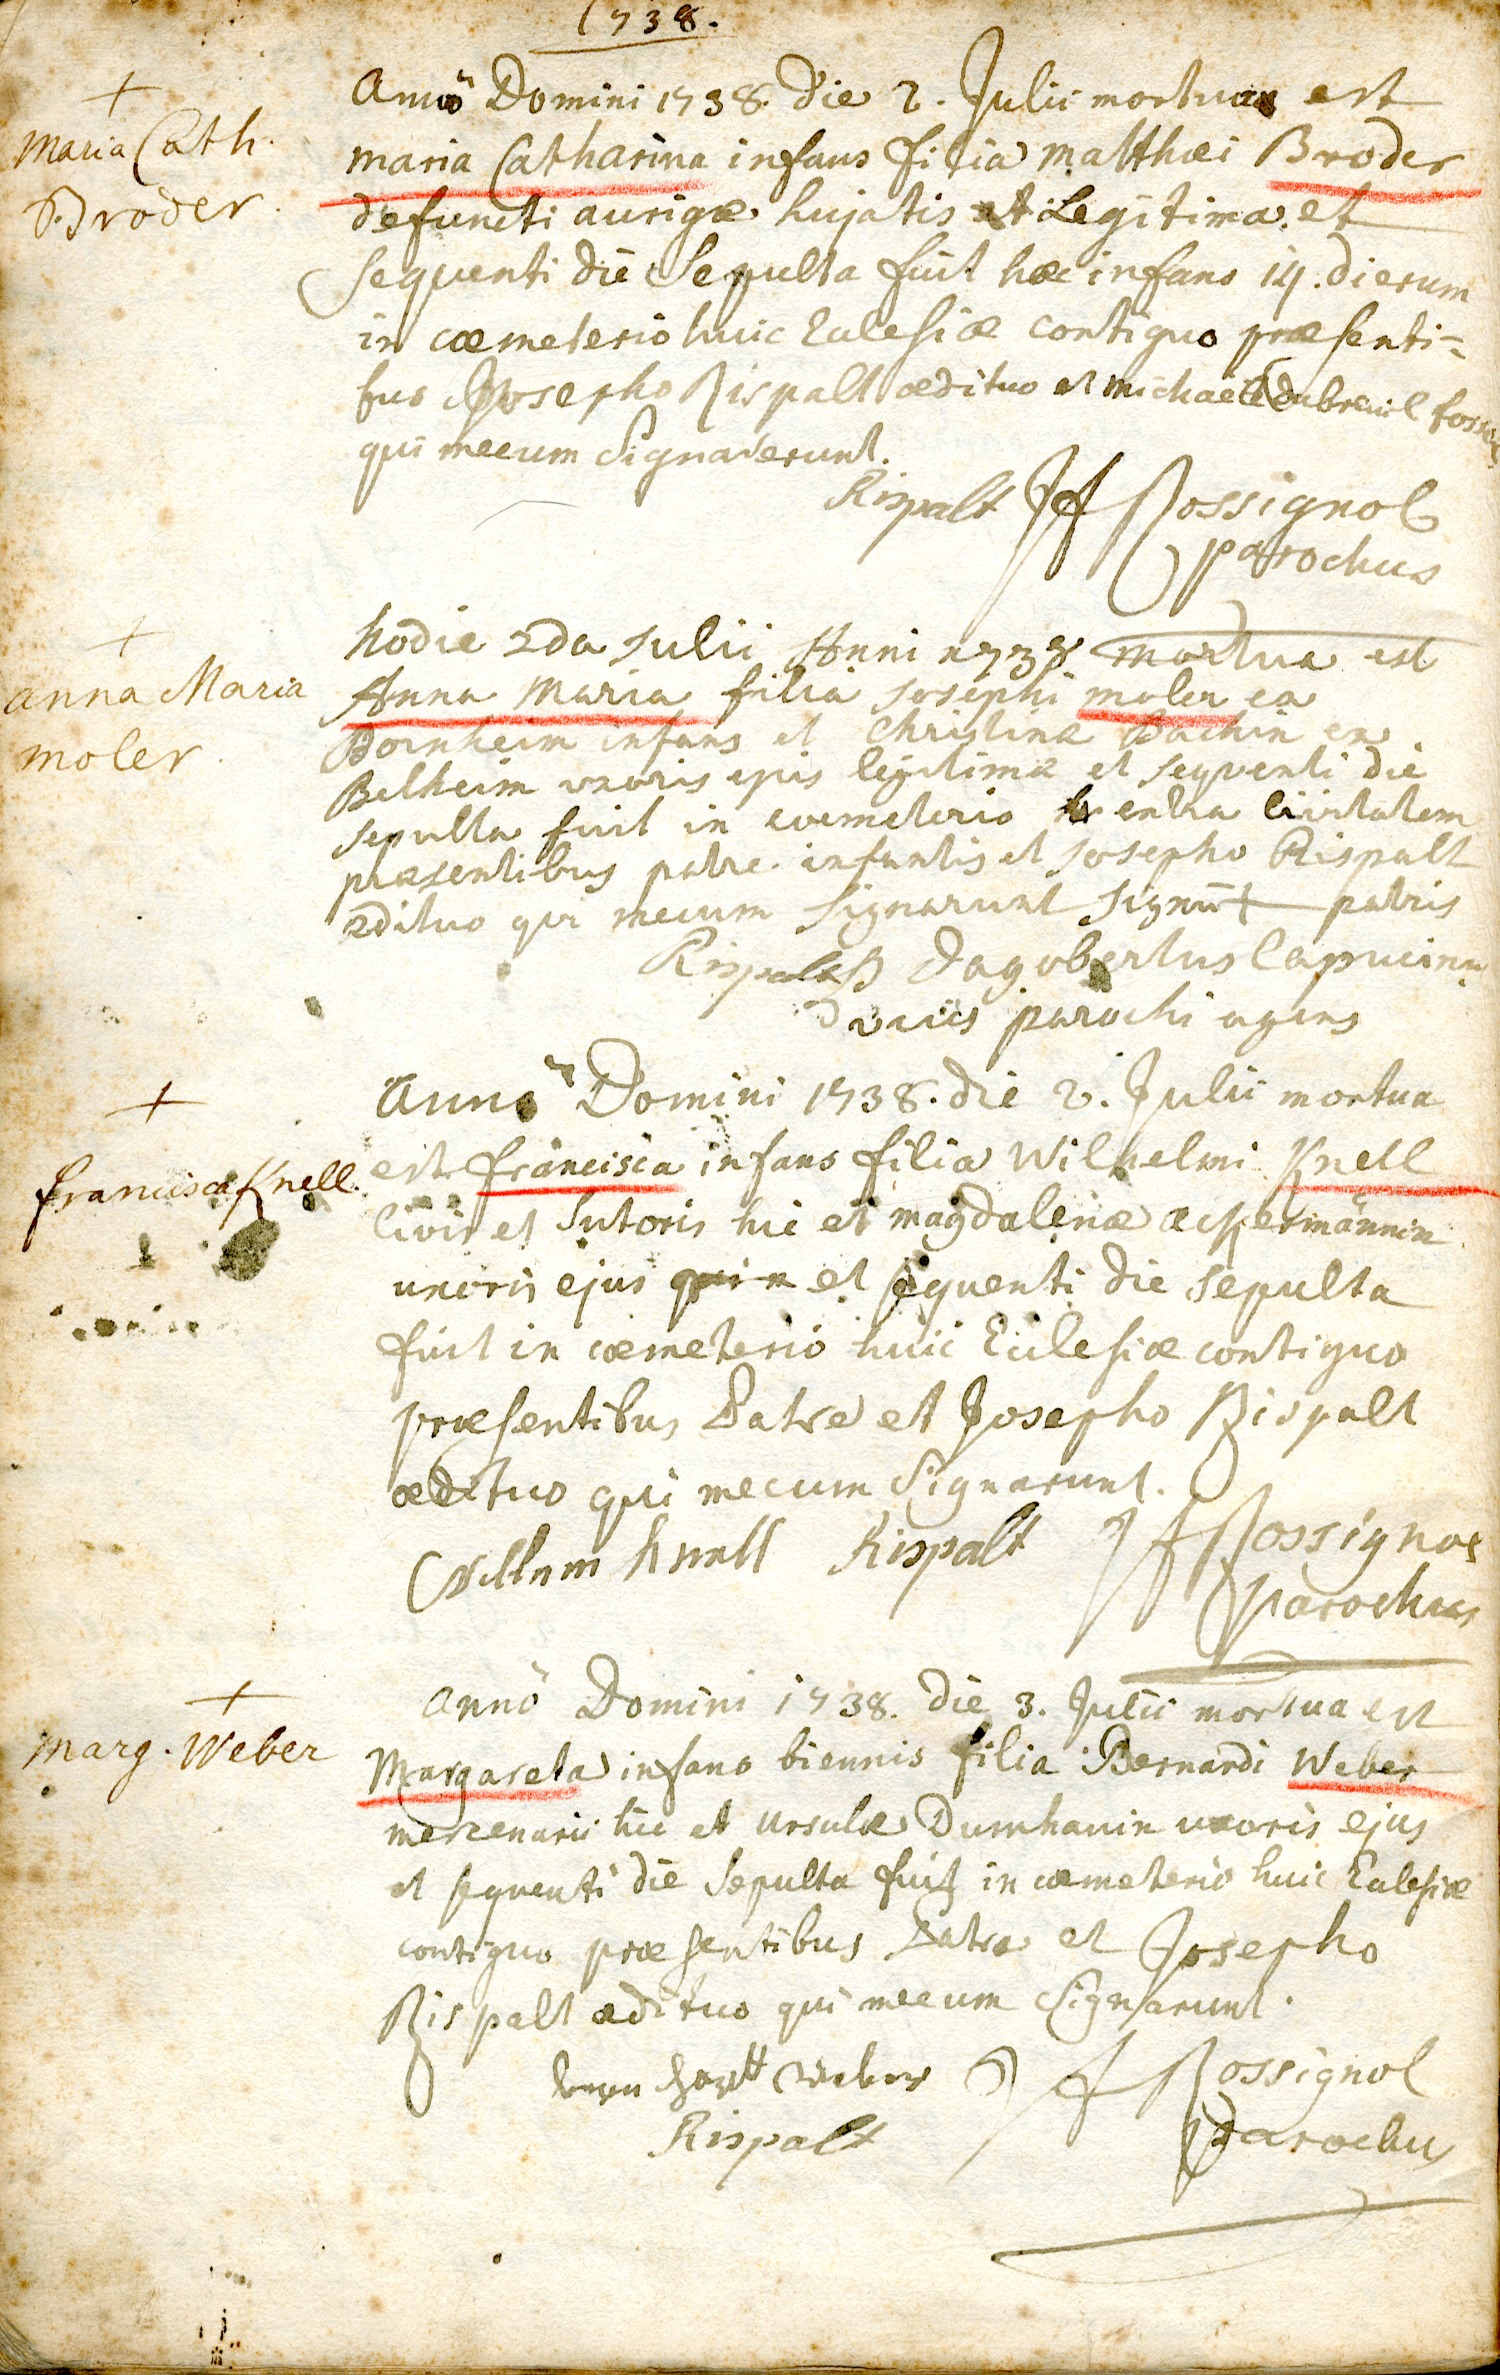 1738.
+
Maria Cath.
Broder.
Anno Domini 1738. die 2. Julii mortua est
maria Catharina infans filia matthæi Broder
defuncti aurigæ hujatis et Legitima. et
sequenti die Sepulta fuit hæc infans 14. dierum
in cœmeterio huic Eclesiæ contiguo præsenti=
bus Josepho Rispalt ædituo et michaele dubreuil
qui mecum Signaverunt.
Rispalt JF Rossignol
parochus
+
anna Maria
moler.
hodie 2da Julii Anni 1738 mortua est
Anna Maria filia Josephi moler ex
Bornheim infans et Christinæ Bachin ex
Belheim uxoris ejus legitimæ et sequenti die
sepulta fuit in coemeterio extra Civitatem
præsentibus patre infantis et Josepho Rispalt
ædituo qui mecum signarunt signū + patris
Rispalt P Dagobertus Capucinus
vices parochi agens
+
francisca Knell.
Anno Domini 1738. die 2. Julii mortua
est francisca infans filia Wilhelmi Knell
Civis et Sutoris hic et magdalenæ ackermännin
uxoris ejus et sequenti die sepulta
fuit in cœmeterio huic Eclesiæ contiguo
præsentibus Patre et Josepho Rispalt
ædituo qui mecum Signarunt.
Willem Knell Rispalt JF Rossignol
parochus
+
Marg. Weber
Anno Domini 1738. die 3. Julii mortua est
Margareta infans biennis filia Bernardi Weber
mercenarii hic et Ursulæ Dumhauin uxoris ejus
et sequenti die Sepulta fuit in cœmeterio huic Eclesiæ
contiguo præsentibus Patre et Josepho
Rispalt ædituo qui mecum Signarunt.
JF Rossignol
Rispalt Parochus